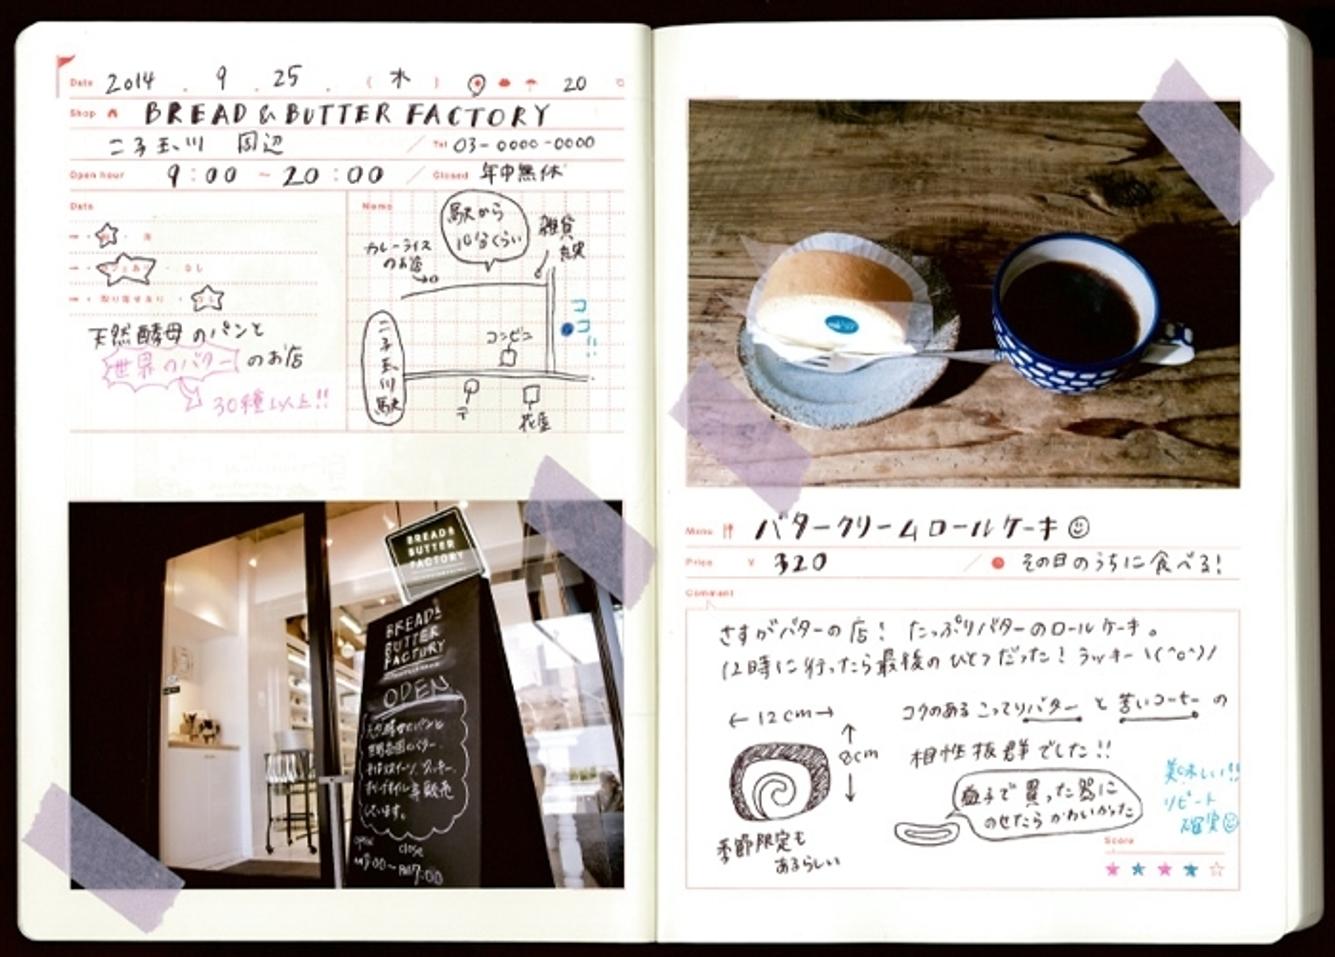 Date 2014 . 9 . 25 . ( 木 ) 20
Shop BREAD & BUTTER FACTORY
二子玉川 周辺 / Tel 03-0000-0000
Open hour 9:00 ~ 20:00 / Closed 年中無休
Data
Memo
駅から
10分くらい
雑貨
カレーライス
のお店
ココ!!
コンビニ
二子玉川駅
〒
花屋
なし
取り寄せあり
天然酵母のパンと
世界のバター のお店
30種以上!!
BREAD&
BUTTER
FACTORY
BREAD&
BUTTER
FACTORY
OPEN
天然酵母のパンと
世界各国のバター、
しています。
open close
AM9:00~PM7:00
Menu バタークリームロールケーキ
Price ¥ 320 / その日のうちに食べる!
Comment
さすがバターの店! たっぷりバターのロールケーキ。
12時に行ったら最後のひとつだった! ラッキー\(^o^)/
← 12cm →
8cm
コクのあるこってりバター と 苦いコーヒー の
相性抜群でした!!
益子で買った器に
のせたらかわいかった
季節限定も
あるらしい
美味しい!!
リピート
確実
Score